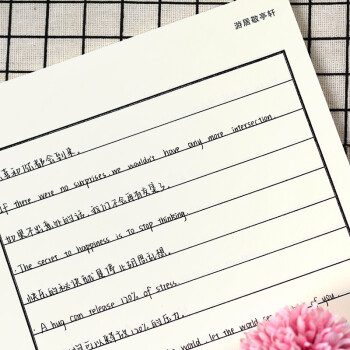 游居敬亭轩
喜和你都会到来。
If there were no surprises, we wouldn't have any more intersection
如果不出意外的话，我们不会再有交集了。
The secret to happiness is to stop thinking.
快乐的秘诀就是停止胡思乱想。
A hug can release 120% of stress.
可以释放120%的压力。
let the world of you